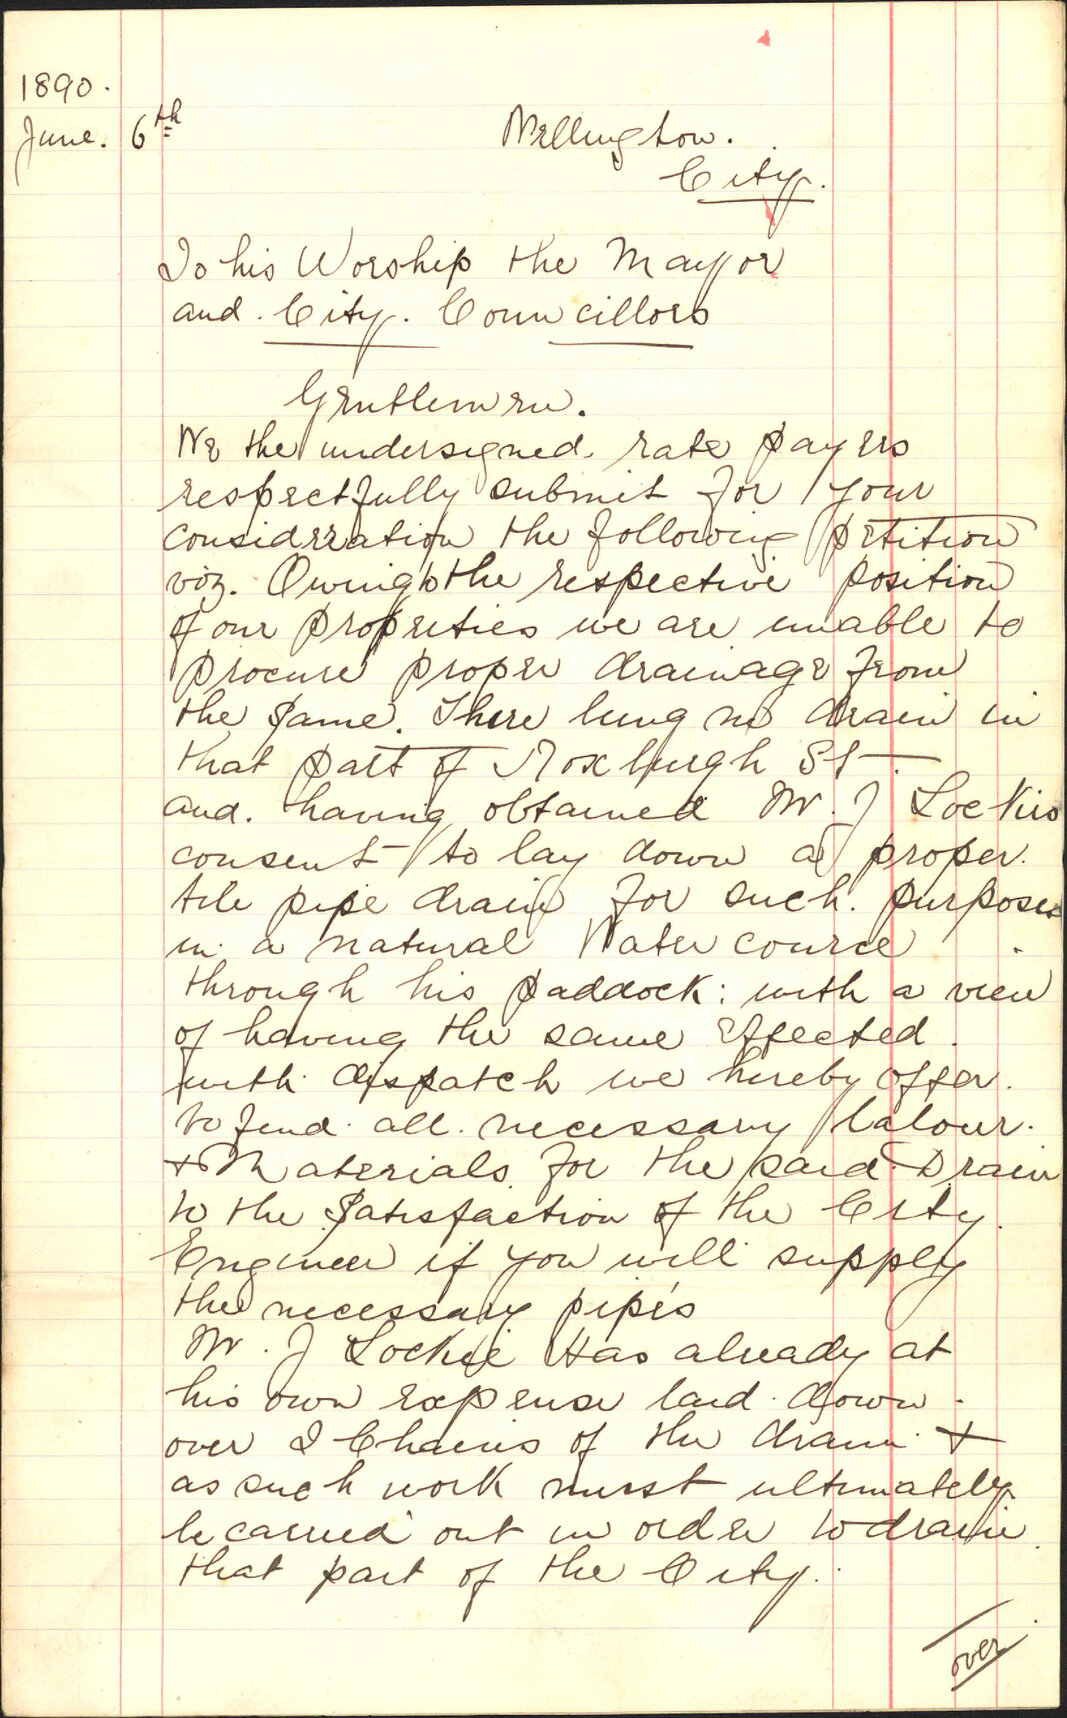 1890.
June. 6th Wellington.
City.
To his Worship the Mayor
and. City. Councillors
Gentlemen.
We the undersigned. rate payers
respectfully submit for your
consideration the following petition
viz. Owing to the respective position
of our properties we are unable to
procure proper drainage from
the same. There being no drain in
that part of Roxburgh St
and. having obtained Mr. J Lockies
consent to lay down a proper.
tile pipe drain for such. purposes
in a natural Water cource
through his paddock: with a view
of having the same Effected.
with dispatch we hereby offer.
to find all. necessary labour.
& Materials. for the said Drain
to the Satisfaction of the City.
Engineer if you will supply
the necessary pipes
Mr. J Lockie Has already at
his own expense laid down.
over 2 Chains of the drain &
as such work must ultimately
be carried out in order to drain
that part of the City.
over